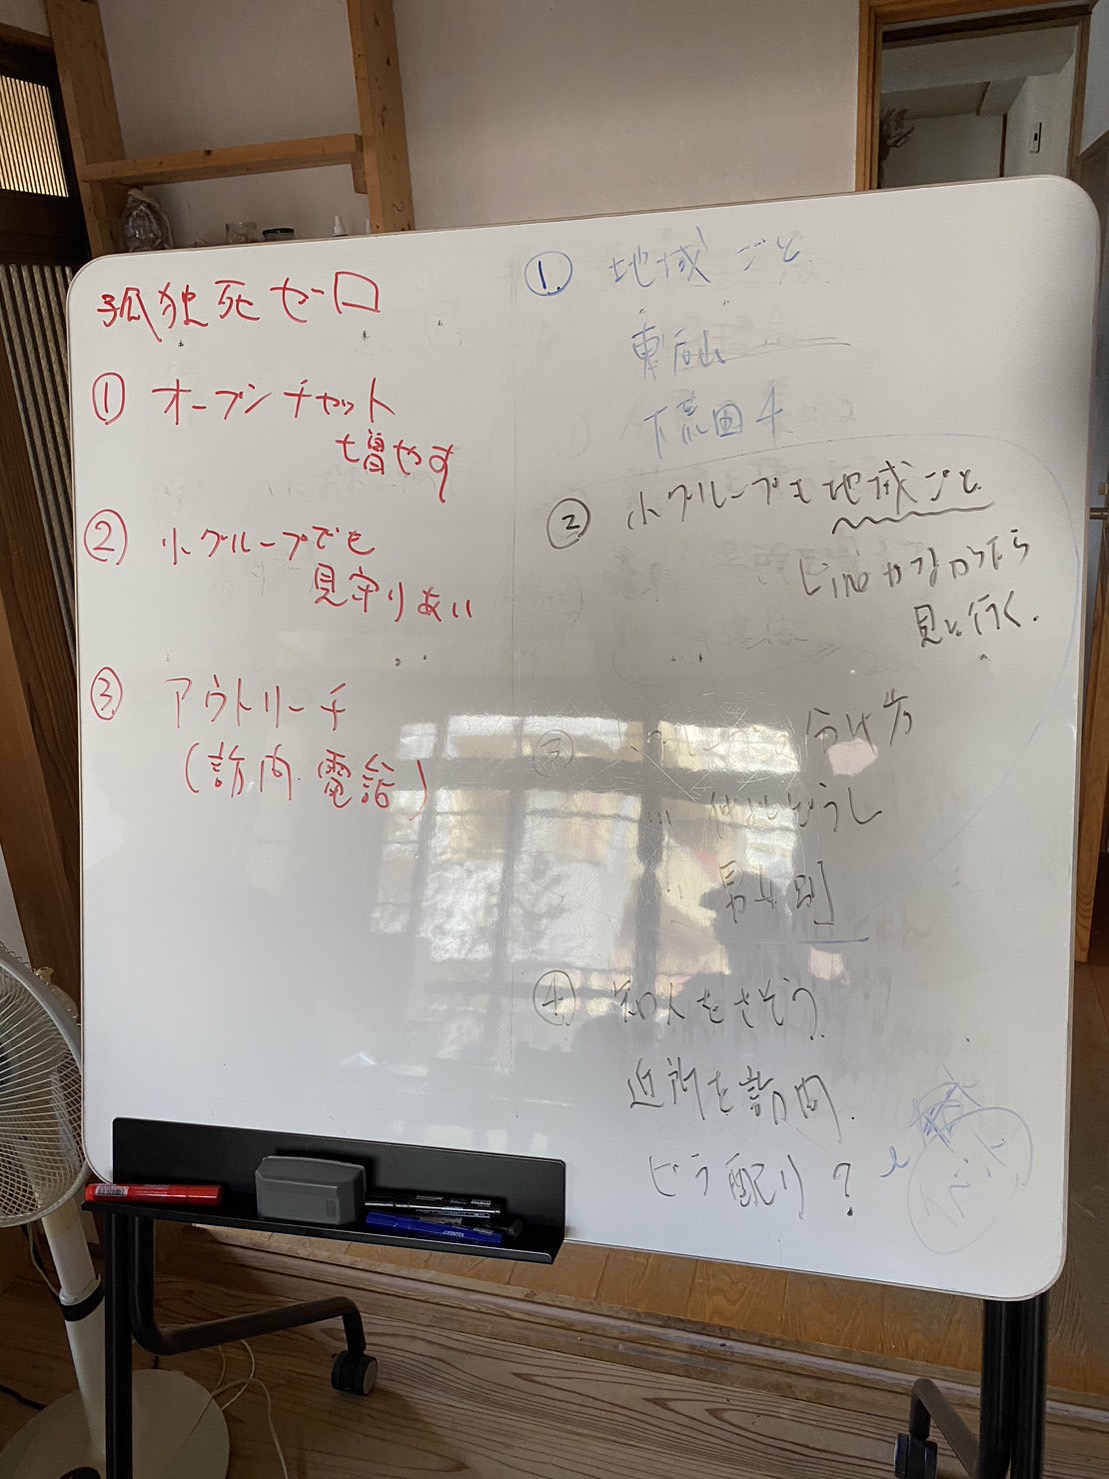 孤独死ゼロ
① オープンチャット
増やす
② 小グループでも
見守りあい
③ アウトリーチ
(訪問.電話)
① 地域ごと
東向山
下荒田4
② 小グループも地域ごと
Lineかなかったら
見に行く.
③ 小グループの分け方
仲よしどうし
男女別
④ 知人をさそう.
近所を訪問.
ビラ配り?